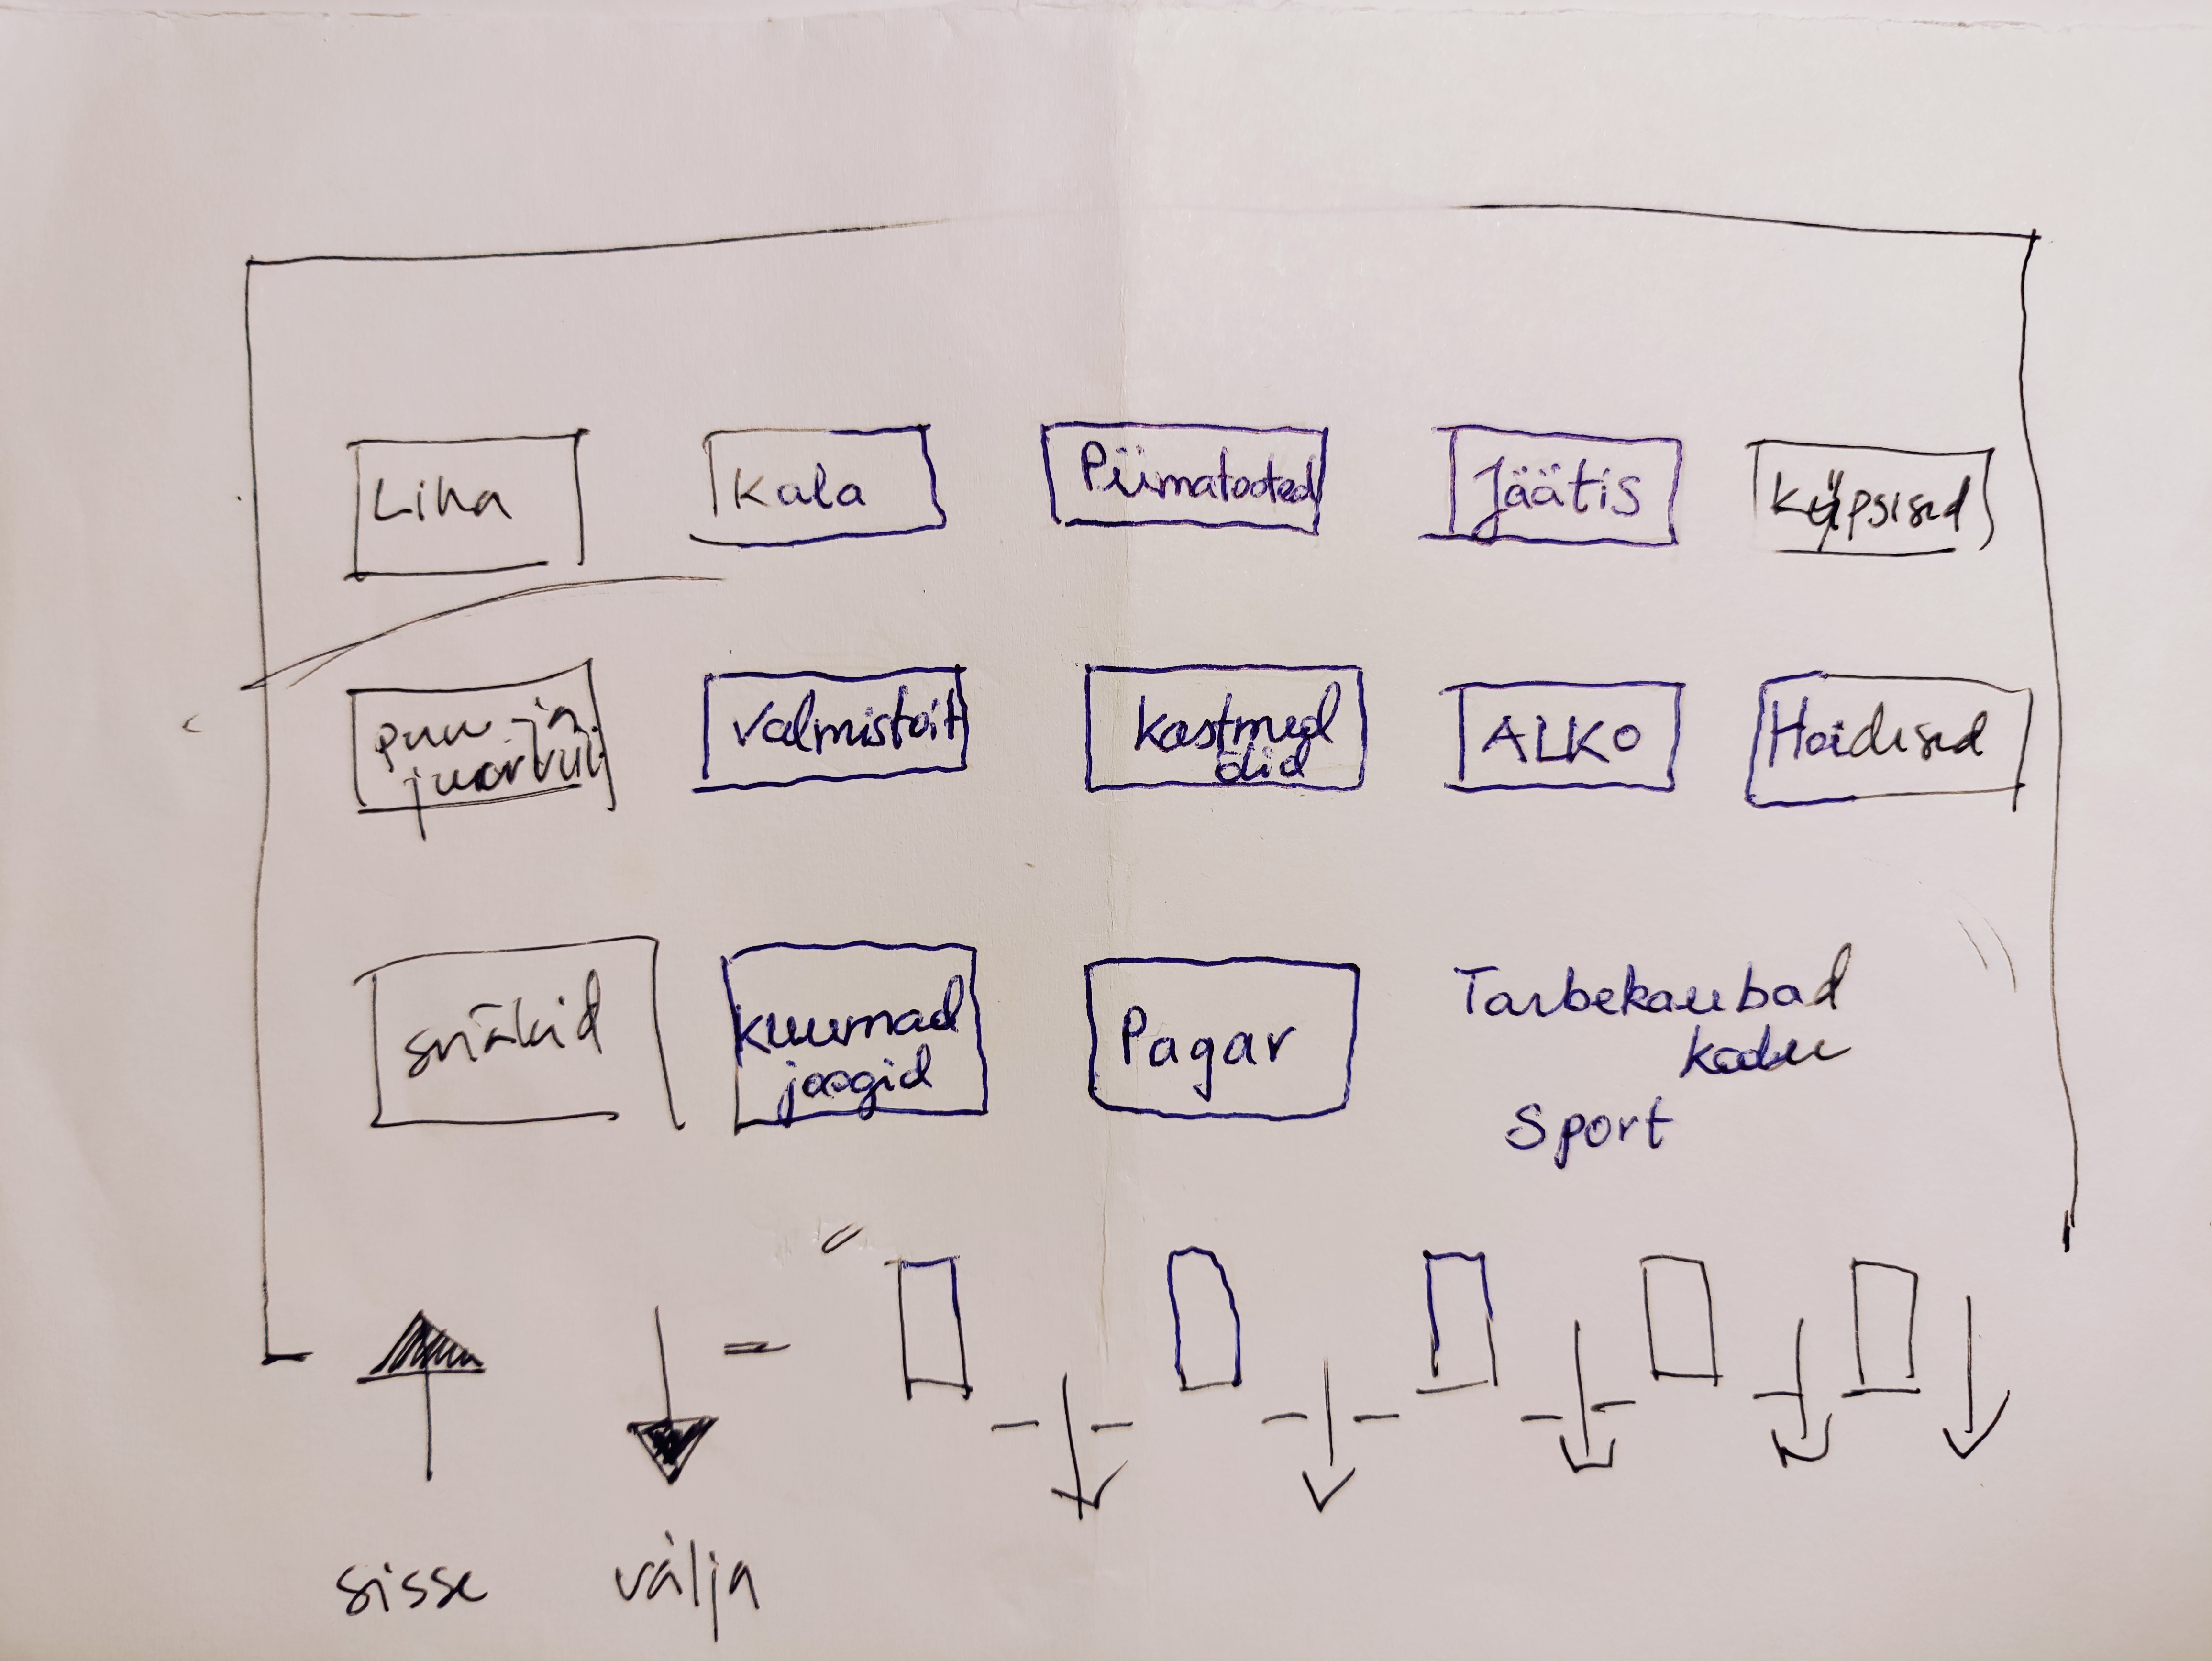 Liha
Kala
Piimatooted
Jäätis
Küpsised
puu- ja
juurvili
Valmistoit
kastmed
õlid
ALKO
Hoidised
snäkid
kuumad
joogid
Pagar
Tarbekaubad
kodu
Sport
sisse
välja